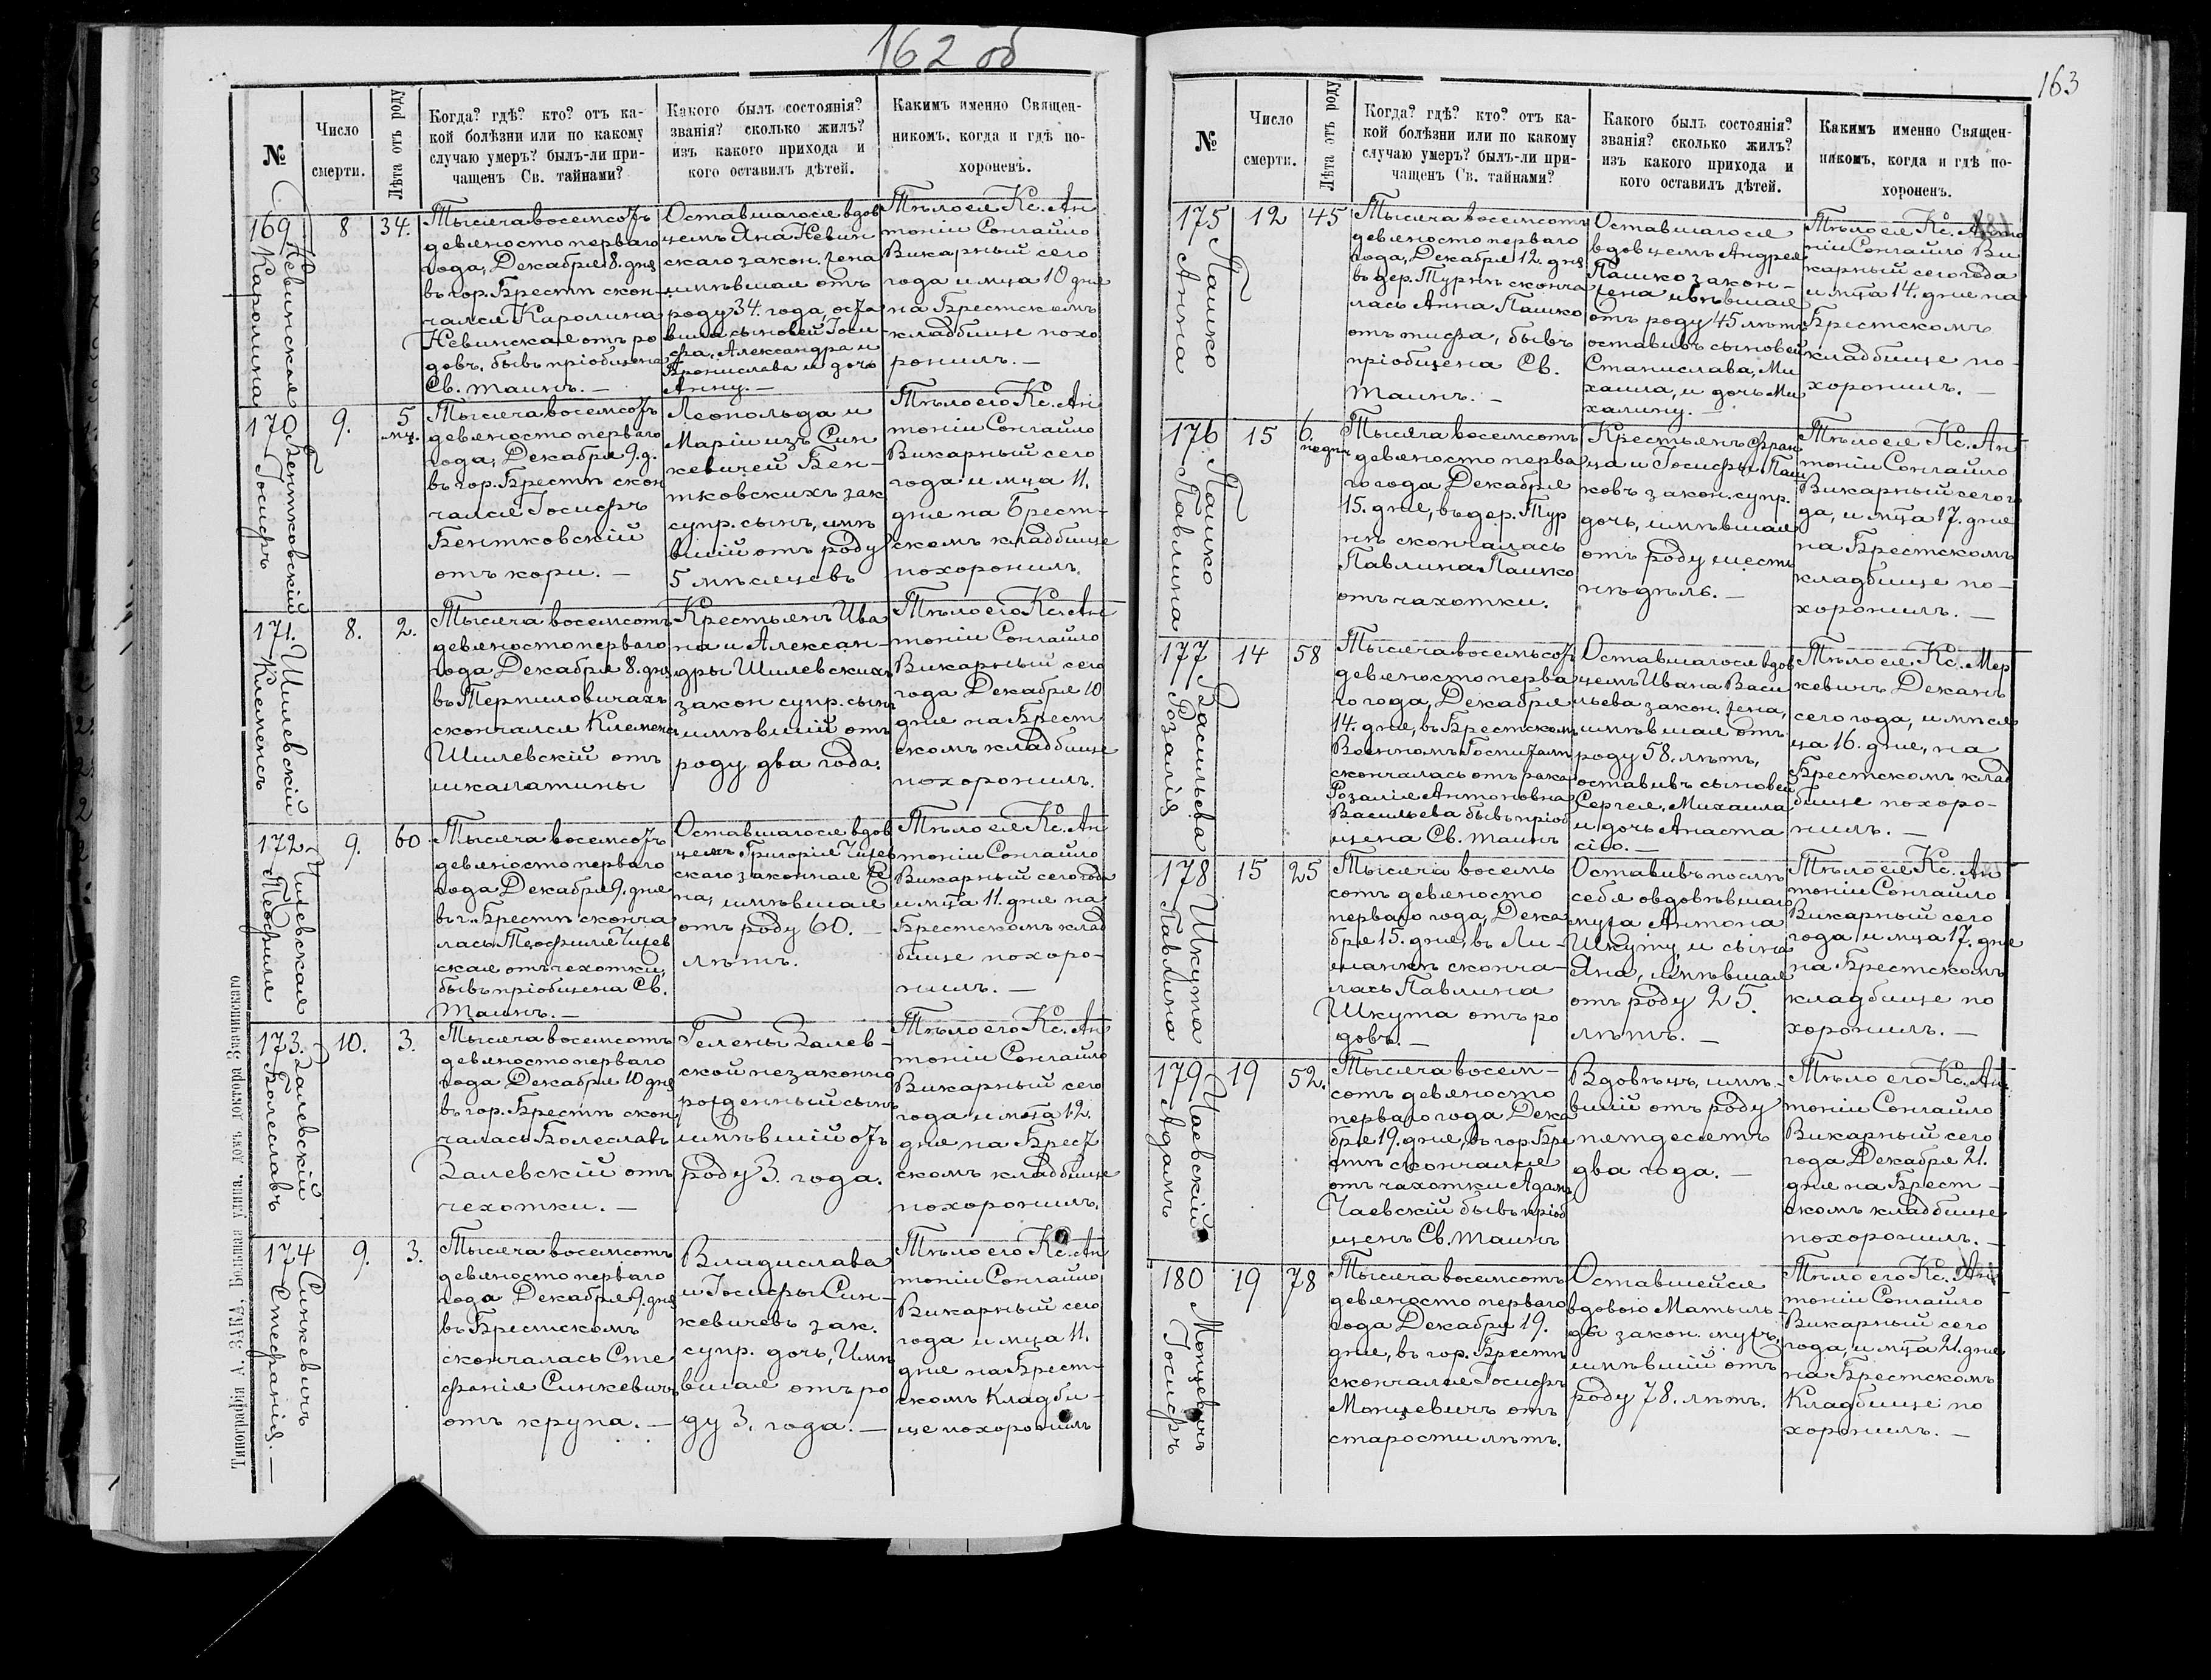 162 об
№
Число
смерти.
Лѣта отъ роду
Когда? гдѣ? кто? отъ ка-
кой болѣзни или по какому
случаю умеръ? былъ-ли при-
чащенъ Св. тайнами?
Какого былъ состоянія?
званія? сколько жилъ?
изъ какого прихода и
кого оставилъ дѣтей.
Какимъ именно Священ-
никомъ, когда и гдѣ по-
хороненъ.
169
Невинская
Каролина
8
34.
Тысяча восемсотъ
девяносто перваго
года, Декабря 8. дня
въ гор. Брестѣ скон-
чался Каролина
Невинская отъ ро
довъ, бывъ пріобщена
Св. таинъ. —
Оставшагося вдов
цемъ Яна Невин
скаго закон. жена
имѣвшая отъ
роду 34. года, оста
вила сыновей Іоси
фа, Александра и
Бронислава и дочь
Анну. —
Тѣло ея Кс. Ан
тоній Сонгайло
Викарный сего
года и мца 10 дня
на Брестскомъ
кладбище похо
ронилъ. —
170
Бентковскій
Іосифъ
9.
5
мц.
Тысяча восемсотъ
девяносто перваго
года, Декабря 9. д.
въ гор. Брестѣ скон
чался Іосифъ
Бентковскій
отъ кори. —
Леопольда и
Маріи изъ Син
кевичей Бен-
тковскихъ зак
супр. сынъ, имѣ
вшій отъ роду
5 мѣсяцевъ
Тѣло его Кс. Ан
тоній Сонгайло
Викарный сего
года и мца 11.
дня на Брест-
скомъ кладбище
похоронилъ.
171.
Шилевскій
Клеменсъ
8.
2.
Тысяча восемсотъ
девяносто перваго
года Декабря 8. дня
въ Терпиловичахъ
скончался Клеменсъ
Шилевскій отъ
шкалатины
Крестьянъ Ива
на и Алексан-
дры Шилевскихъ
закон супр. сынъ
имѣвшій отъ
роду два года.
Тѣло его Кс. Ан
тоній Сонгайло
Викарный сего
года Декабря 10
дня на Брест
скомъ кладбище
похоронилъ.
172
Чишевская
Теофиля
9.
60
Тысяча восемсотъ
девяносто перваго
года Декабря 9. дня
въ г. Брестѣ сконча
лась Теофиля Чишев
ская отъ чехотки,
бывъ пріобщена Св.
Таинъ. —
Оставшагося вдов
цемъ Григорія Чишев
скаго законная же
на, имѣвшая
отъ роду 60. —
лѣтъ.
Тѣло ея Кс. Ан
тоній Сонгайло
Викарный сего года
и мца 11. дня на
Брестскомъ клад
бище похоро-
нилъ. —
173.
Залевскій
Болеславъ
10.
3.
Тысяча восемсотъ
девяносто перваго
года Декабря 10 дня
въ гор. Брестѣ скон
чалась Болеславъ
Залевскій отъ
чехотки. —
Гелены Залев-
ской незаконно
рожденный сынъ
имѣвшій отъ
роду 3. года.
Тѣло его Кс. Ан
тоній Сонгайло
Викарный сего
года и мца 12.
дня на Брест
скомъ кладбище
похоронилъ.
174
Синкевичъ
Стефанія. —
9.
3.
Тысяча восемсотъ
девяносто перваго
года Декабря 9. дня
въ Брестскомъ
скончалась Сте
фанія Синкевичъ
отъ крупа. —
Владислава
и Іосифы Син-
кевичевъ зак.
супр. дочь, имѣ
вшая отъ ро
ду 3. года. —
Тѣло его Кс. Ан
тоній Сонгайло
Викарный сего
года и мца 11.
дня на Брест-
скомъ Кладби-
ще похоронилъ
Типографія А. ЗАКА, Большая улица, домъ доктора Значинскаго
163
№
Число
смерти.
Лѣта отъ роду
Когда? гдѣ? кто? отъ ка-
кой болѣзни или по какому
случаю умеръ? былъ-ли при-
чащенъ Св. тайнами?
Какого былъ состоянія?
званія? сколько жилъ?
изъ какого прихода и
кого оставилъ дѣтей.
Какимъ именно Священ-
никомъ, когда и гдѣ по-
хороненъ.
175
Пашко
Анна
12
45
Тысяча восемсотъ
девяносто перваго
года, Декабря 12. дня
въ дер. Турнѣ сконча
лась Анна Пашко
отъ тифа, бывъ
пріобщена Св.
Таинъ. —
Оставшагося
вдовцемъ Андрея
Пашко закон-
жена имѣвшая
отъ роду 45 лѣтъ
оставивъ сыновей
Станислава, Ми
хаила, и дочь Ми
халину. —
Тѣло ея Кс. Анто
ній Сонгайло Ви
карный сего года
и мца 14. дня на
Брестскомъ
кладбище по-
хоронилъ. —
176
Пашко
Павлина
15
6.
недѣл
Тысяча восемсотъ
девяносто перва
го года Декабря
15. дня, въ дер. Тур
нѣ скончалась
Павлина Пашко
отъ чахотки.
Крестьянъ Фран
ца и Іосифы Паш
ковъ закон. супр.
дочь, имѣвшая
отъ роду шесть
недѣль. —
Тѣло ея Кс. Ан
тоній Сонгайло
Викарный сего го
да, и мца 17. дня
на Брестскомъ
кладбище по-
хоронилъ. —
177
Васильева
Розалія
14
58
Тысяча восемьсотъ
девяносто перва
го года, Декабря
14. дня, въ Брестскомъ
Военномъ Госпиталѣ
скончалась отъ рака
Розалія Антоновна
Васильева бывъ пріоб
щена Св. таинъ
Оставшагося вдов
цемъ Ивана Васи
льева закон. жена,
имѣвшая отъ
роду 58. лѣтъ,
оставивъ сыновей
Сергея, Михаила
и дочь Анаста
сію. —
Тѣло ея Кс. Мер
кевичъ Деканъ
сего года, и мѣся
ца 16. дня, на
Брестскомъ клад
бище похоро-
нилъ. —
178
Шкута
Павлина
15
25
Тысяча восемь
сотъ девяносто
перваго года, Дека
бря 15. дня, въ Ли-
сконча-
лась Павлина
Шкута отъ ро
довъ. —
Оставивъ послѣ
себя овдовѣвшаго
мужа Антона
Шкуту, и сына
Яна, имѣвшая
отъ роду 25.
лѣтъ. —
Тѣло ея Кс. Ан
тоній Сонгайло
Викарный сего
года и мца 17. дня
на Брестскомъ
кладбище по
хоронилъ. —
179
Чаевскій
Адамъ
19
52.
Тысяча восем-
сотъ девяносто
перваго года Дека
бря 19. дня, въ гор. Бре
стѣ скончался
отъ чахотки Адамъ
Чаевскій бывъ пріоб
щенъ Св. таинъ
Вдовецъ, имѣ-
вшій отъ роду
петдесятъ
два года. —
Тѣло его Кс. Ан
тоній Сонгайло
Викарный сего
года Декабря 21.
дня на Брест-
скомъ кладбище
похоронилъ. —
180
Монцевичъ
Іосифъ
19
78
Тысяча восемсотъ
девяносто перваго
года Декабря 19.
дня, въ гор. Брестѣ
скончался Іосифъ
Монцевичъ отъ
старости лѣтъ.
Оставшейся
вдовою Матиль-
ды закон. мужъ,
имѣвшій отъ
роду 78. лѣтъ.
Тѣло его Кс. Ан
тоній Сонгайло
Викарный сего
года, и мца 21. дня
на Брестскомъ
Кладбище по
хоронилъ. —